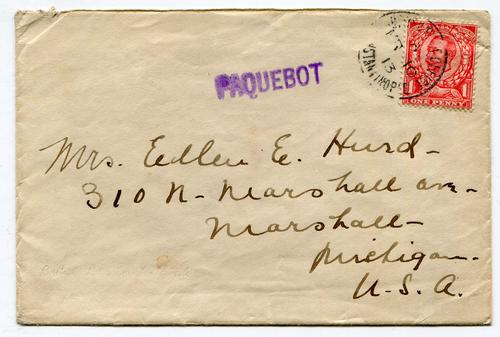 PAQUEBOT
ONE PENNY
Mrs. Ellen E. Hurd
310 N. Marshall ave.
Marshall
Michigan
U.S.A.